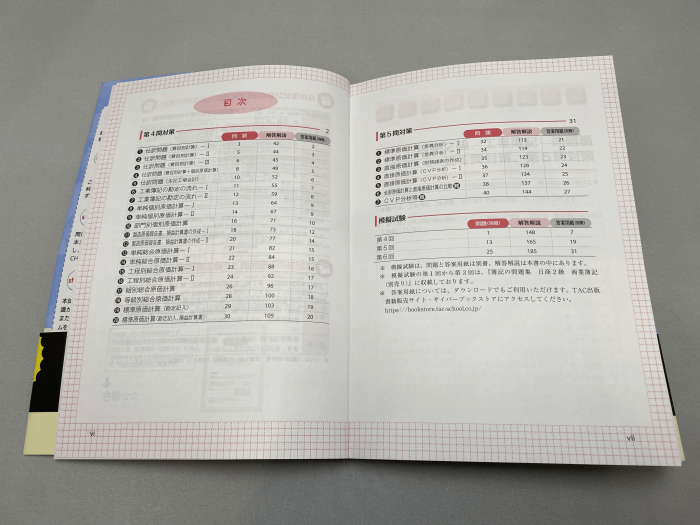 目次
第4問対策 2
問題 解答解説 答案用紙(別冊)
1 仕訳問題（費目別計算）－Ⅰ 3 42 2
2 仕訳問題（費目別計算）－Ⅱ 5 44 3
3 仕訳問題（費目別計算）－Ⅲ 6 45 4
4 仕訳問題（費目別計算＋個別原価計算） 8 49 5
5 仕訳問題（本社工場会計） 10 52 6
6 工業簿記の勘定の流れ－Ⅰ 11 55 7
7 工業簿記の勘定の流れ－Ⅱ 12 59 8
8 単純個別原価計算－Ⅰ 13 64 9
9 単純個別原価計算－Ⅱ 14 67 9
10 部門別個別原価計算 16 71 10
11 製造原価報告書、損益計算書の作成－Ⅰ 18 73 12
12 製造原価報告書、損益計算書の作成－Ⅱ 20 77 14
13 単純総合原価計算－Ⅰ 21 82 15
14 単純総合原価計算－Ⅱ 22 84 15
15 工程別総合原価計算－Ⅰ 23 88 16
16 工程別総合原価計算－Ⅱ 24 92 17
17 組別総合原価計算 26 96 17
18 等級別総合原価計算 28 100 18
19 標準原価計算（勘定記入） 29 103 19
20 標準原価計算（勘定記入、損益計算書） 30 109 20
vi
第5問対策 31
問題 解答解説 答案用紙(別冊)
1 標準原価計算（差異分析）－Ⅰ 32 113 21
2 標準原価計算（差異分析）－Ⅱ 34 119 22
3 直接原価計算（財務諸表の作成） 35 123 23
4 直接原価計算（CVP分析）－Ⅰ 36 128 24
5 直接原価計算（CVP分析）－Ⅱ 37 134 25
6 全部原価計算と直接原価計算の比較 38 137 26
7 CVP分析等 40 144 27
模擬試験
問題(別冊) 解答解説 答案用紙(別冊)
第4回 1 148 7
第5回 13 165 19
第6回 25 185 31
※ 模擬試験は、問題と答案用紙は別冊、解答解説は本書の中にあります。
※ 模擬試験の第1回から第3回は、『簿記の問題集 日商2級 商業簿記
（別売り）』に収載しております。
※ 答案用紙については、ダウンロードでもご利用いただけます。TAC出版
書籍販売サイト・サイバーブックストアにアクセスしてください。
https://bookstore.tac-school.co.jp/
vii